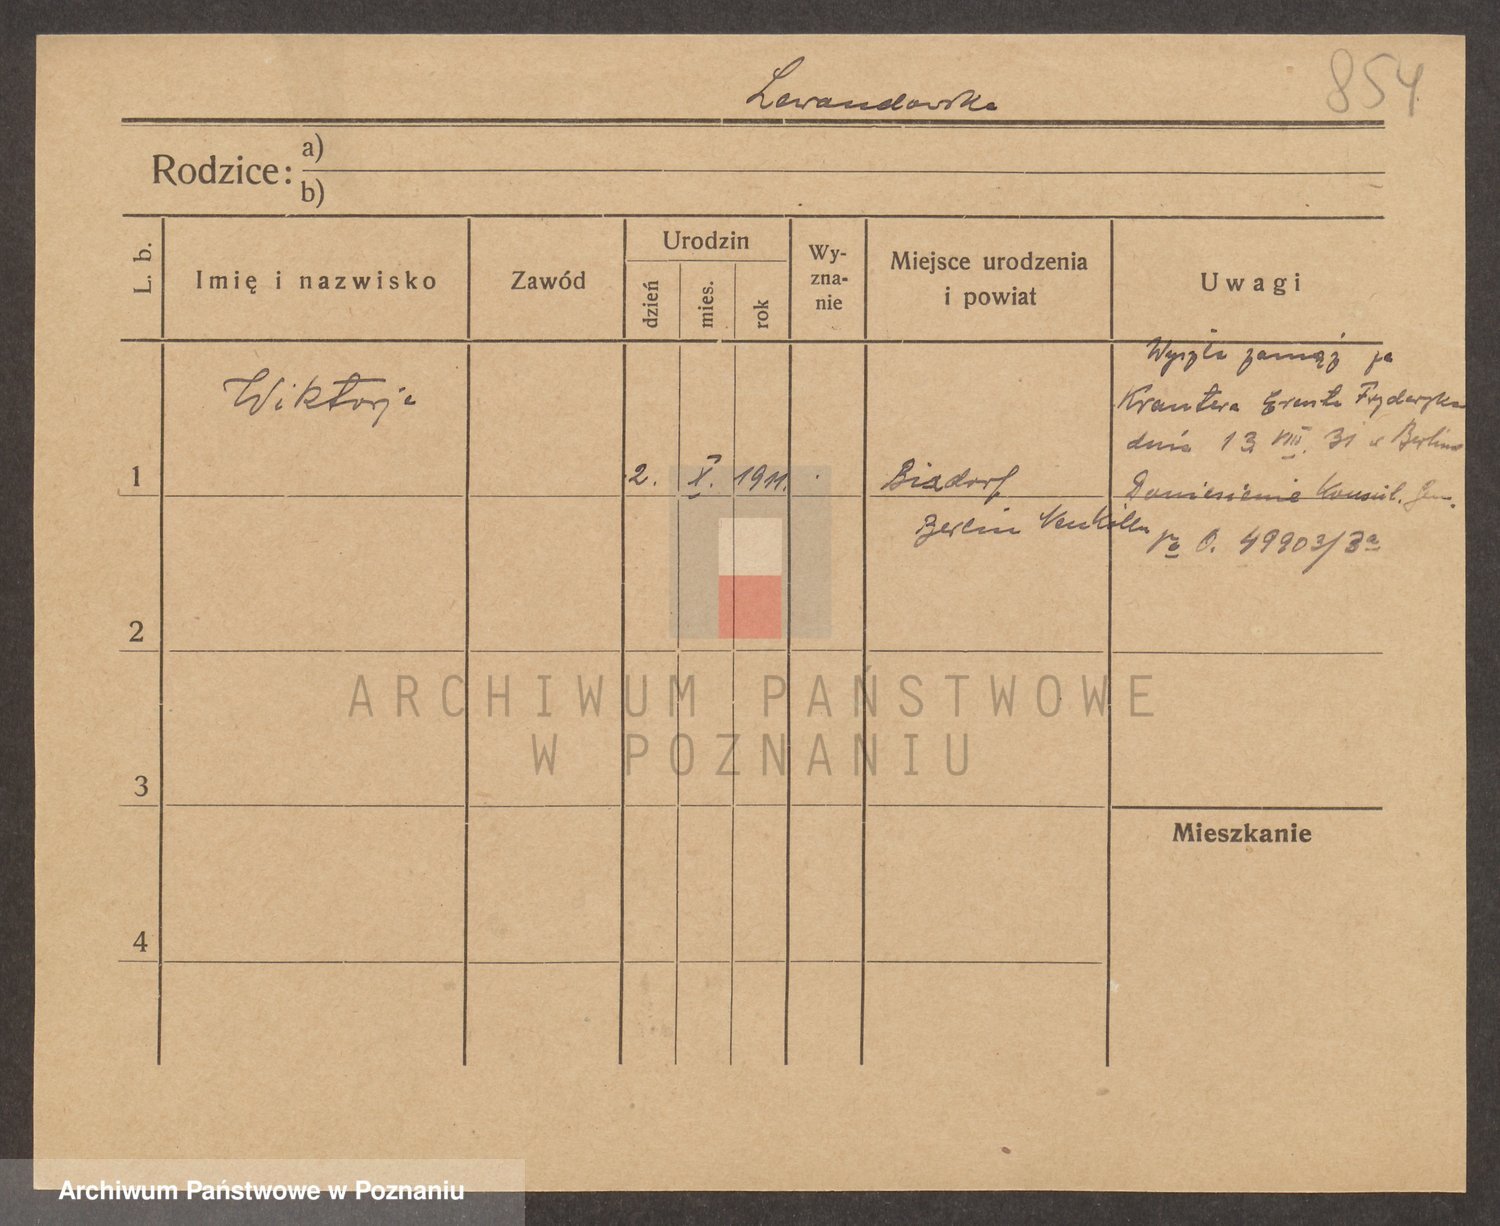 Lewandowska
854
Rodzice:
a)
b)
L. b.
Imię i nazwisko
Zawód
Urodzin
dzień
mies.
rok
Wy-
zna-
nie
Miejsce urodzenia
i powiat
Uwagi
Wyszła zamąż za
Krautera Ernsta Fryderyka
dnia 13 VIII. 31 w Berlinie
Doniesienie Konsul. Gen.
No O. 49903/3a
1
Wiktorja
2. X. 1911.
Bixdorf
Berlin Neukölln
2
3
4
Mieszkanie
ARCHIWUM PAŃSTWOWE
W POZNANIU
Archiwum Państwowe w Poznaniu